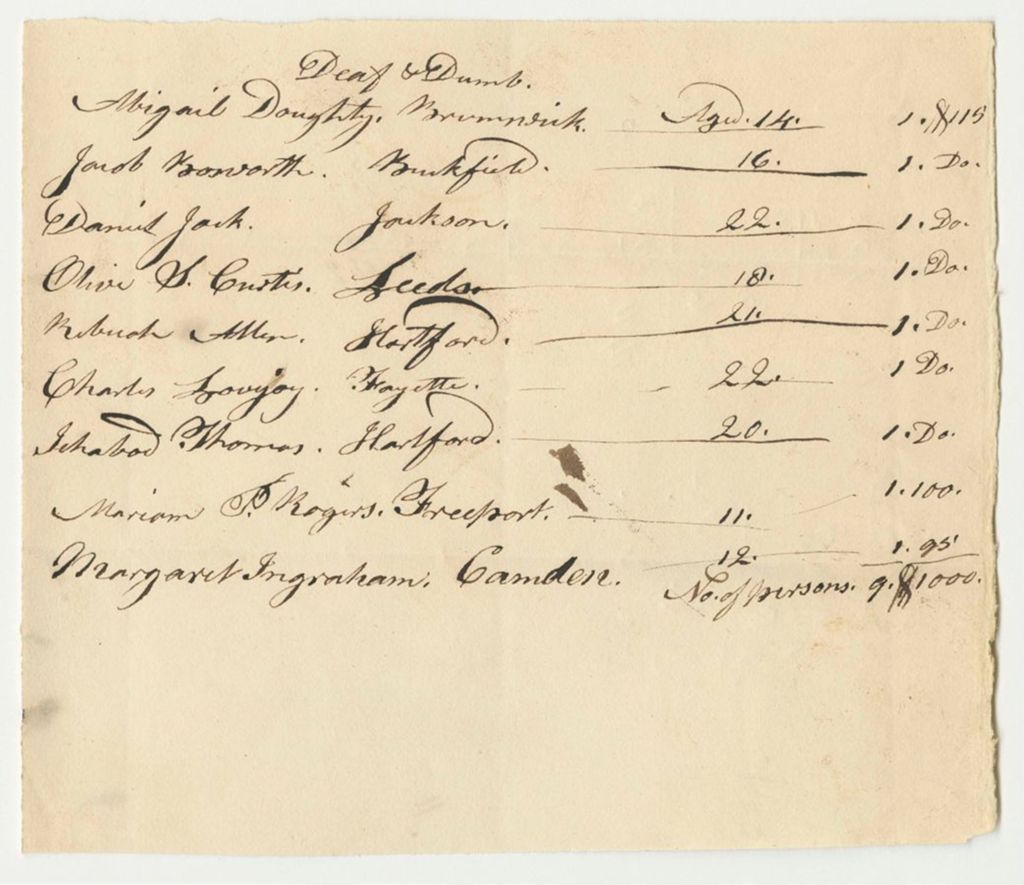 Deaf & Dumb.
Abigail Doughty. Brunswick. Aged. 14. 1. $115
Jacob Bosworth. Buckfield. 16. 1. Do.
Daniel Jack. Jackson. 22. 1. Do.
Olive S. Curtis. Leeds 18. 1. Do.
Rebecah Allen. Hartford. 21. 1. Do.
Charles Lovejoy. Fayette. 22. 1 Do.
Ichabod Thomas. Hartford. 20. 1. Do.
Mariam P. Rogers. Freeport. 11. 1. 100.
Margaret Ingraham. Camden. 12. 1. 95
No. of persons. 9. $1000.